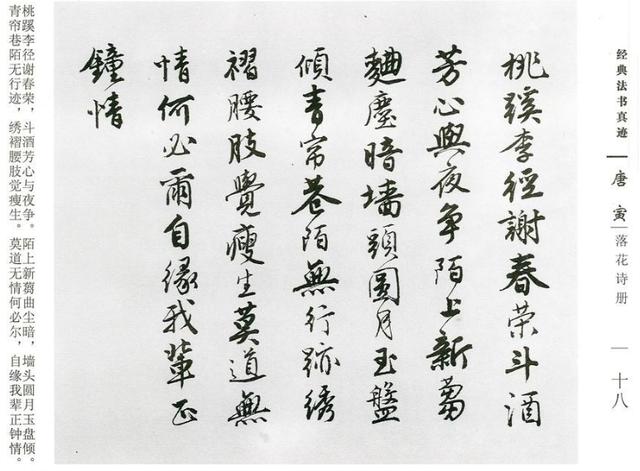 经典法书真迹
唐寅
落花诗册
十八
桃蹊李径謝春荣斗酒
芳心與夜争陌上新蒭
麯塵暗墙頭圆月玉盤
傾青帘巷陌無行跡绣
褶腰肢覺瘦生莫道無
情何必爾自缘我輩正
鐘情
桃蹊李径谢春荣，斗酒芳心与夜争。陌上新蒭曲尘暗，墙头圆月玉盘倾。
青帘巷陌无行迹，绣褶腰肢觉瘦生。莫道无情何必尔，自缘我辈正钟情。